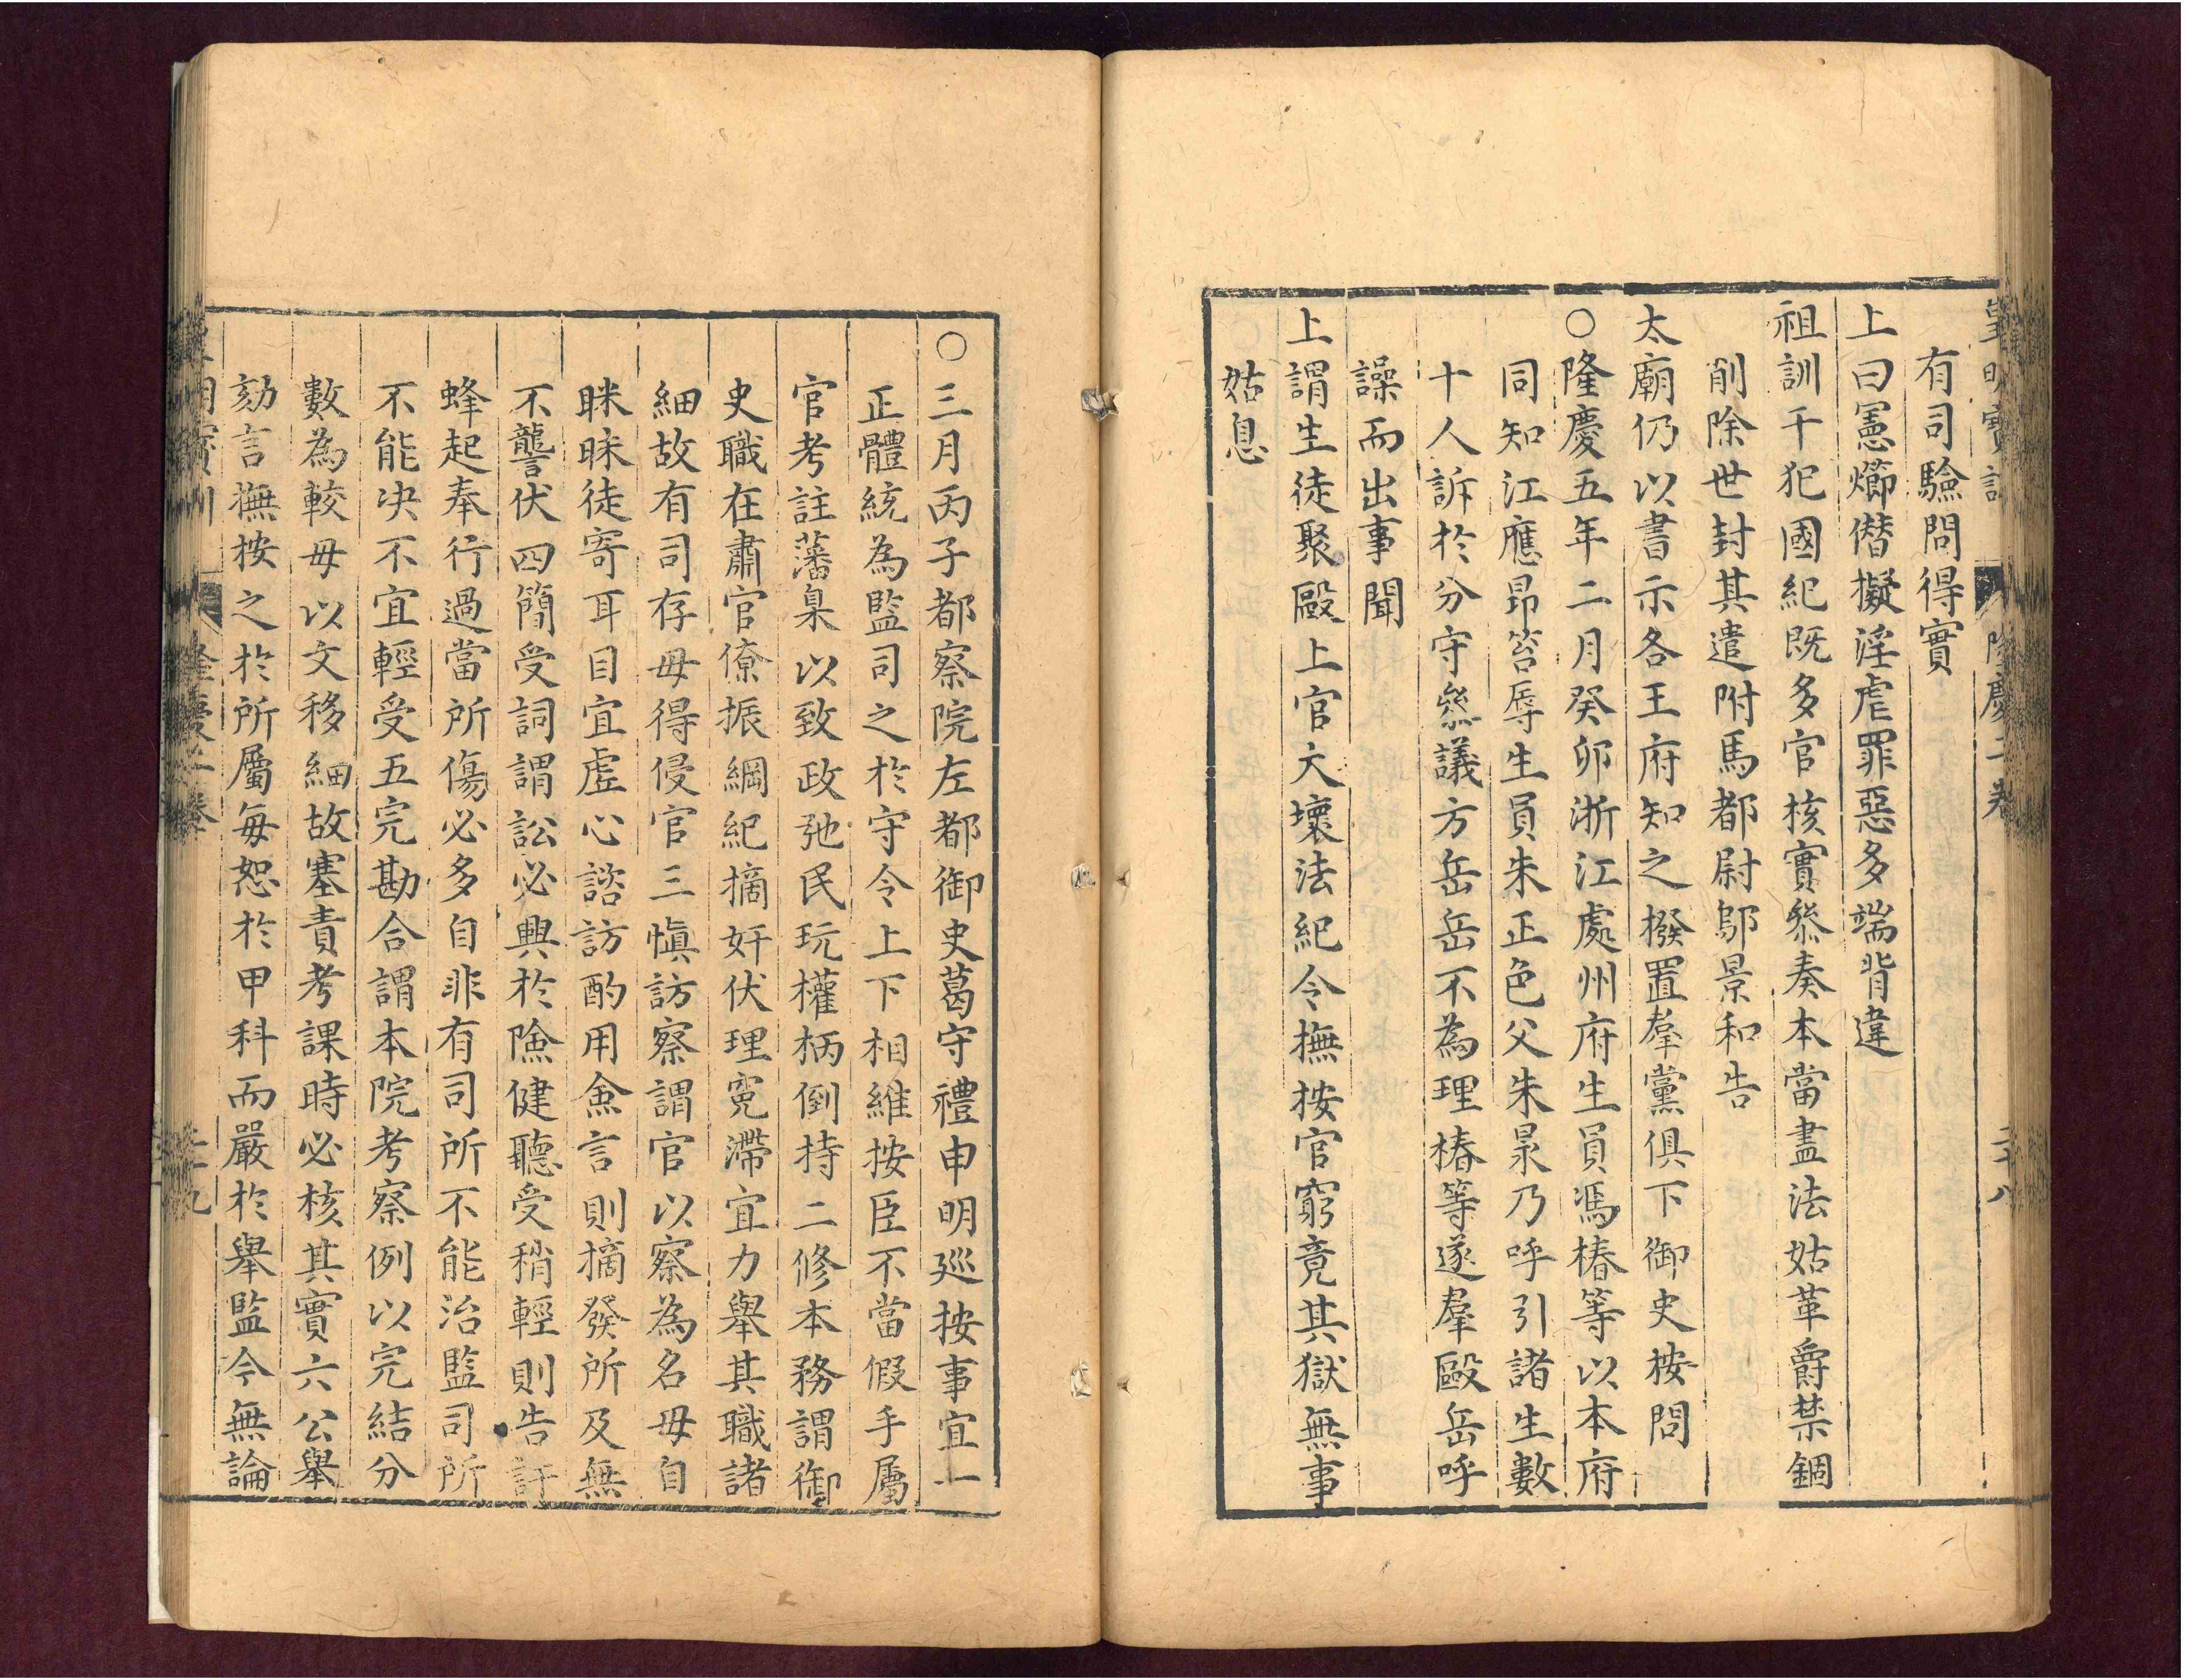 皇明寶訓 隆慶二卷 二十八
有司驗問得實
上曰憲㸅僣擬淫虐罪惡多端背違
祖訓干犯國紀既多官核實叅奏本當盡法姑革爵禁錮
削除世封其遣附馬都尉鄔景和告
太廟仍以書示各王府知之撥置羣黨俱下御史按問
○隆慶五年二月癸卯浙江處州府生員馮椿等以本府
同知江應昻笞辱生員朱正色父朱杲乃呼引諸生數
十人訴於分守叅議方岳岳不為理椿等遂羣毆岳呼
譟而出事聞
上謂生徒聚毆上官大壞法紀令撫按官窮竟其獄無事
姑息
○三月丙子都察院左都御史葛守禮申明廵按事宜一
正體統為監司之於守令上下相維按臣不當假手屬
官考註藩臬以致政弛民玩權柄倒持二修本務謂御
史職在肅官僚振綱紀摘奸伏理寃滯宜力舉其職諸
細故有司存毋得侵官三慎訪察謂官以察為名毋自
眯眛徒寄耳目宜虛心諮訪酌用僉言則摘發所及無
不讋伏四簡受詞謂訟必興於險健聽受稍輕則告訐
蜂起奉行過當所傷必多自非有司所不能治監司所
不能决不宜輕受五完勘合謂本院考察例以完結分
數為較毋以文移細故塞責考課時必核其實六公舉
劾言撫按之於所屬毎恕於甲科而嚴於舉監今無論
明寶訓 隆慶二卷 二十九